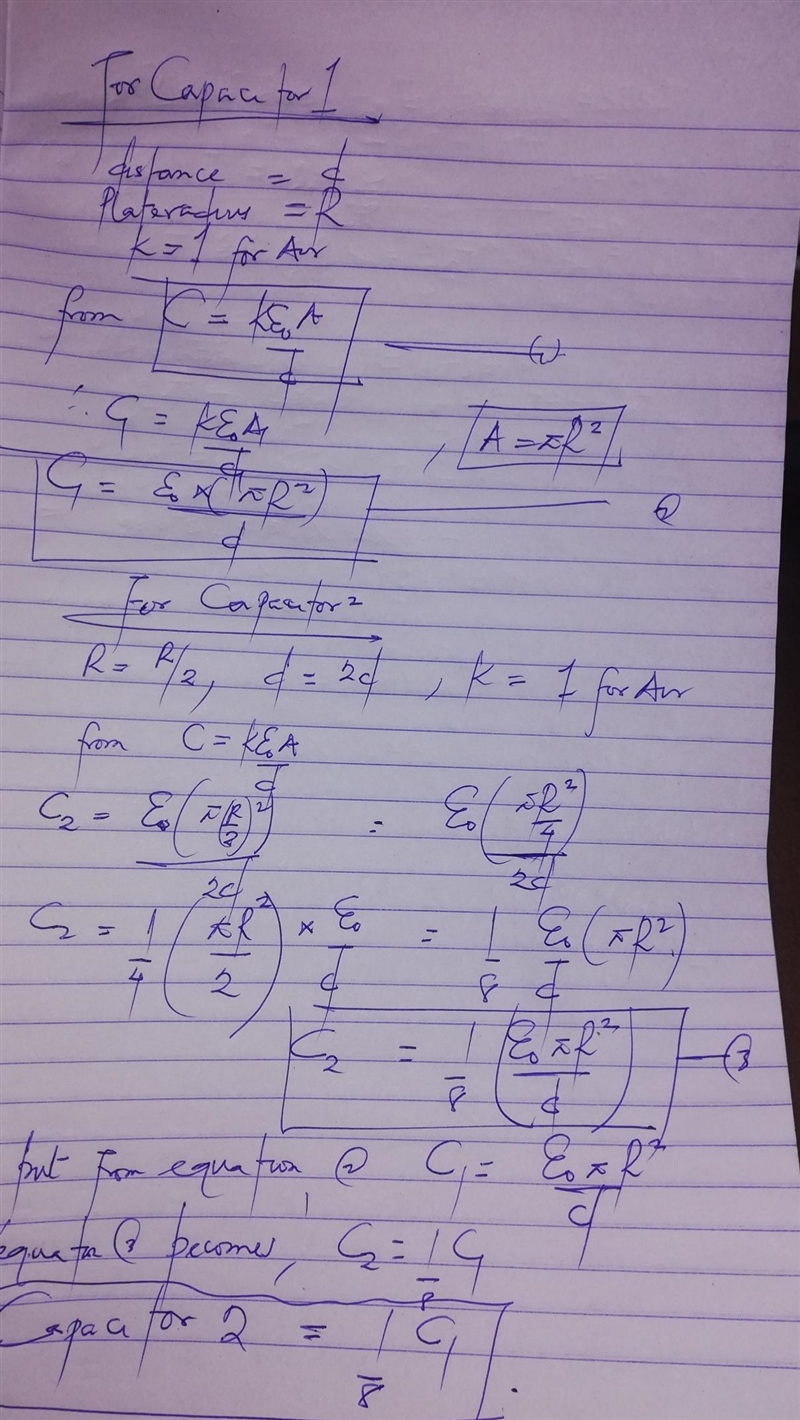 For Capacitor 1
distance = d
Plate radius = R
k = 1 for Air
from C = kε₀A / d ——— (1)
∴ C₁ = kε₀A₁ / d , A = πR²
C₁ = ε₀ × (πR²) / d ——— (2)
For Capacitor 2
R = R/2, d = 2d, k = 1 for Air
from C = kε₀A / d
C₂ = ε₀(π(R/2)²) / 2d = ε₀(πR²/4) / 2d
C₂ = 1/4 (πR²/2) × ε₀/d = 1/8 ε₀/d (πR²)
C₂ = 1/8 (ε₀πR² / d) — (3)
but from equation (2) C₁ = ε₀πR² / d
equation (3) becomes, C₂ = 1/8 C₁
Capacitor 2 = 1/8 C₁.